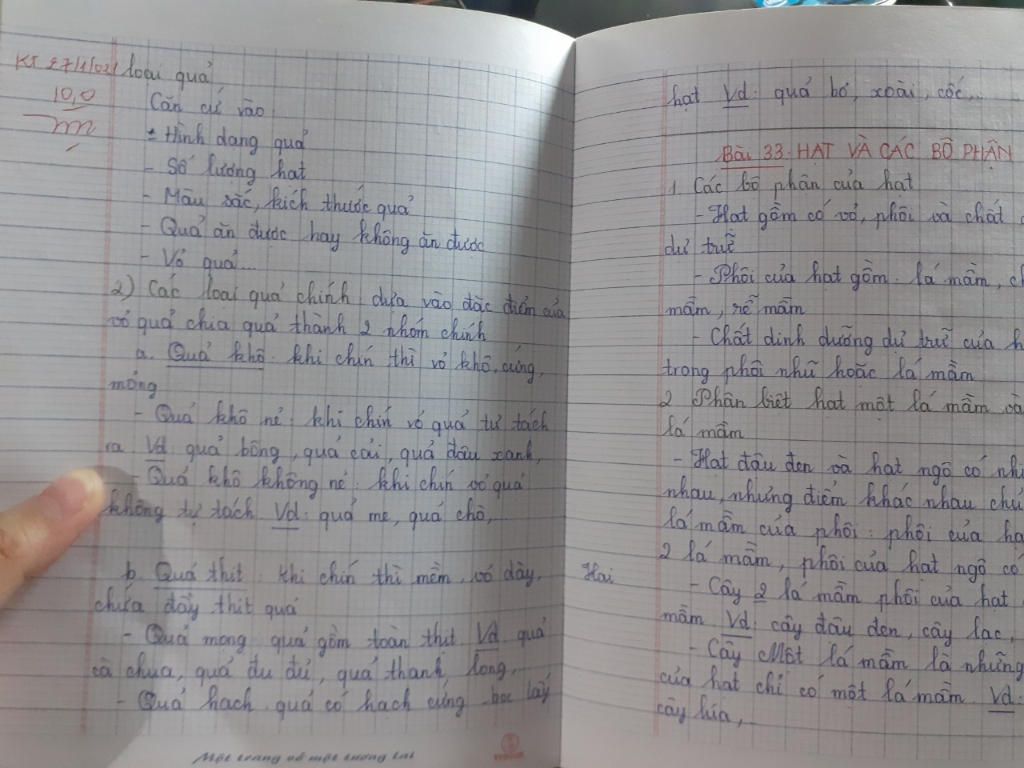 KT 27/1/021 loại quả
10,0
Căn cứ vào
+ Hình dạng quả
- Số lượng hạt
- Màu sắc, kích thước quả
- Quả ăn được hay không ăn được
- Vỏ quả...
2) Các loại quả chính: dựa vào đặc điểm của
vỏ quả chia quả thành 2 nhóm chính
a. Quả khô: khi chín thì vỏ khô, cứng,
mỏng
- Quả khô nẻ: khi chín vỏ quả tự tách
ra. Vd: quả bông, quả cải, quả đậu xanh,
- Quả khô không nẻ: khi chín vỏ quả
không tự tách Vd: quả me, quả chò,
b. Quả thịt: Khi chín thì mềm, vỏ dày,
chứa đầy thịt quả
- Quả mọng: quả gồm toàn thịt Vd: quả
cà chua, quả đu đủ, quả thanh long,
- Quả hạch: quả có hạch cứng bọc lấy
Một trang vở một tương lai
hạt Vd: quả bơ, xoài, cóc,..
Bài 33: HẠT VÀ CÁC BỘ PHẬN
1. Các bộ phận của hạt
- Hạt gồm có vỏ, phôi và chất
dự trữ
- Phôi của hạt gồm: lá mầm, ch
mầm, rễ mầm
- Chất dinh dưỡng dự trữ của h
trong phôi nhũ hoặc lá mầm
2. Phân biệt hạt một lá mầm và
lá mầm
- Hạt đậu đen và hạt ngô có nhi
nhau, nhưng điểm khác nhau chủ
lá mầm của phôi: phôi của hạ
2 lá mầm, phôi của hạt ngô có
Hai - Cây 2 lá mầm phôi của hạt
mầm Vd: cây đậu đen, cây lạc,
- Cây Một lá mầm là những
của hạt chỉ có một lá mầm. Vd:
cây lúa,